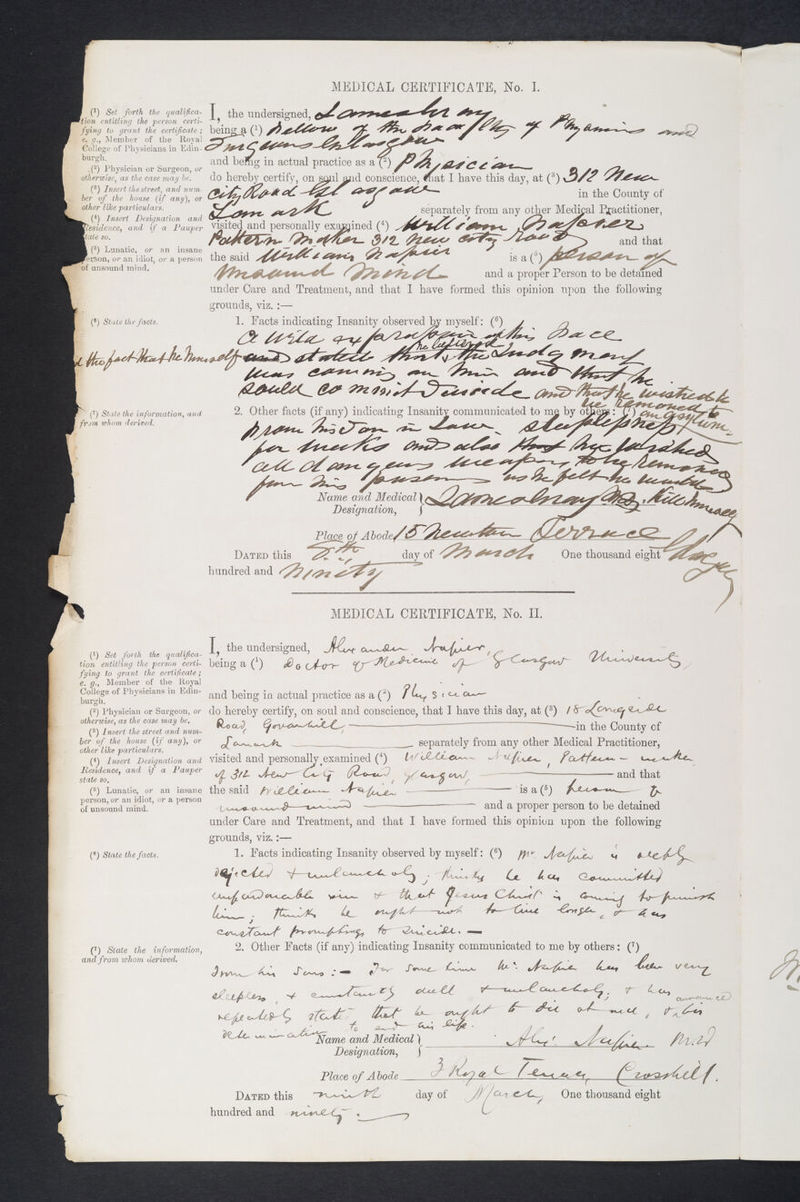 MEDICAL CERTIFICATE, No. I.
(¹) Set forth the qualifica-
tion entitling the person certi-
fying to grant the certificate;
e. g., Member of the Royal
College of Physicians in Edin-
burgh.
(²) Physician or Surgeon, or
otherwise, as the case may be.
(³) Insert the street, and num-
ber of the house (if any), or
other like particulars.
(⁴) Insert Designation and
Residence, and if a Pauper
state so.
(⁵) Lunatic, or an insane
person, or an idiot, or a person
of unsound mind.
I, the undersigned,
being a (¹) Fellow of the Faculty of Physicians and
Surgeons Glasgow
and being in actual practice as a (²) Physician
do hereby certify, on soul and conscience, that I have this day, at (³) 312 New
City Road Glasgow in the County of
Lanark separately from any other Medical Practitioner,
visited and personally examined (⁴) William Napier
Pattern Maker 312 New City Road and that
the said William Napier is a (⁵) person of
unsound mind and a proper Person to be detained
under Care and Treatment, and that I have formed this opinion upon the following
grounds, viz. :—
(⁶) State the facts.
1. Facts indicating Insanity observed by myself: (⁶)
A wild expression of his face
& the fact that he himself and stated that he believed the Judgment
was coming on him and that he
would commit Suicide and that he wished to
be removed to an asylum.
(⁷) State the information, and
from whom derived.
2. Other facts (if any) indicating Insanity communicated to me by others: (⁷)
From his Son in Law. Sleeplessness
for weeks and also that he wished
all dangerous weapons to be removed
from his person as he felt he would
kill himself
Name and Medical
Designation,
Place of Abode 15 Newton Terrace
Glasgow
DATED this day of March One thousand eight
hundred and Ninety
MEDICAL CERTIFICATE, No. II.
(¹) Set forth the qualifica-
tion entitling the person certi-
fying to grant the certificate;
e. g., Member of the Royal
College of Physicians in Edin-
burgh.
(²) Physician or Surgeon, or
otherwise, as the case may be.
(³) Insert the street and num-
ber of the house (if any), or
other like particulars.
(⁴) Insert Designation and
Residence, and if a Pauper
state so.
(⁵) Lunatic, or an insane
person, or an idiot, or a person
of unsound mind.
I, the undersigned, Alexander Napier,
being a (¹) Doctor of Medicine of Glasgow University,
and being in actual practice as a (²) Physician
do hereby certify, on soul and conscience, that I have this day, at (³) 18 Langside
Road, Govanhill, in the County of
Lanark separately from any other Medical Practitioner,
visited and personally examined (⁴) William Napier, Pattern-maker
of 312 New City Road, Glasgow, and that
the said William Napier is a (⁵) person of
unsound mind and a proper person to be detained
under Care and Treatment, and that I have formed this opinion upon the following
grounds, viz. :—
(⁶) State the facts.
1. Facts indicating Insanity observed by myself: (⁶) Mr. Napier is deeply
dejected & melancholy; thinks he has committed
unpardonable sin & that Jesus Christ is coming to punish
him; thinks he ought not to live longer, & has
constant promptings to suicide. —
(⁷) State the information,
and from whom derived.
2. Other Facts (if any) indicating Insanity communicated to me by others: (⁷)
From his Sons :— For some time Mr. Napier has been very
sleepless, & constantly dull & melancholy, & has
repeatedly stated that he ought to die at once, & his
determination to end his life.
Name and Medical
Designation, Alex. Napier M.D
Place of Abode 3 Royal Terrace, Crosshill.
DATED this ninth day of March, One thousand eight
hundred and ninety.